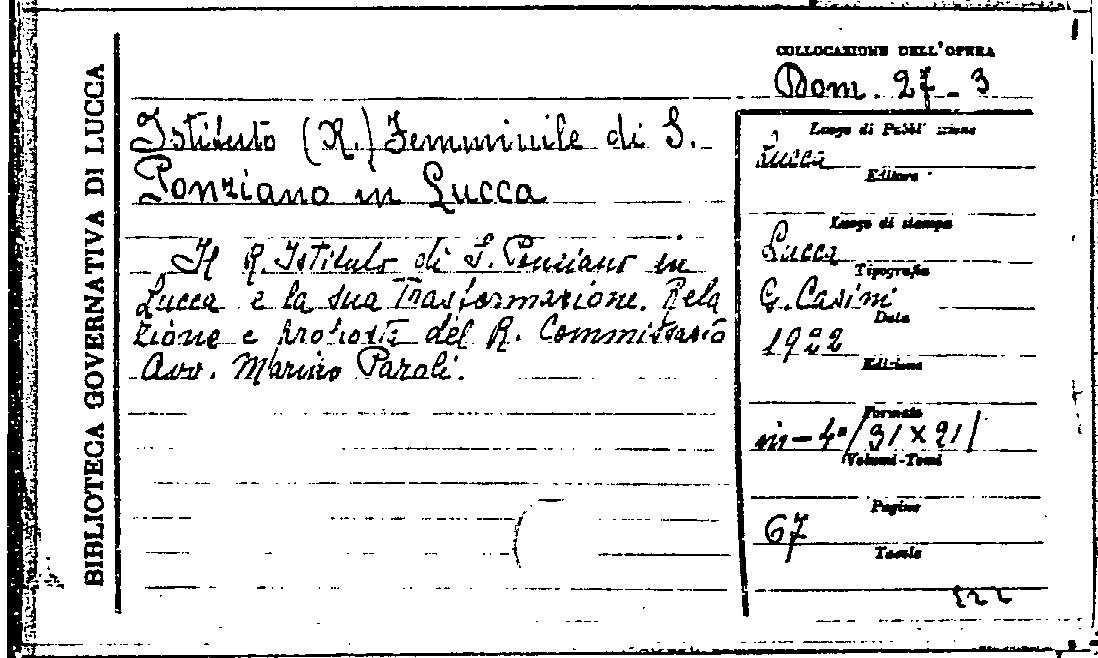 BIBLIOTECA GOVERNATIVA DI LUCCA
COLLOCAZIONE DELL'OPERA
Dom. 27-3
Istituto (R.) Femminile di S.
Ponziano in Lucca
Il R. Istituto di S. Ponziano in
Lucca e la sua Trasformazione. Rela
zione e proposte del R. Commissario
Avv. Marino Paroli.
Luogo di Pubblicazione
Lucca
Editore
Luogo di stampa
Lucca
Tipografia
G. Casini
Data
1922
Edizione
Formato
in-4°/31×21/
Volumi-Tomi
Pagine
67
Tavole